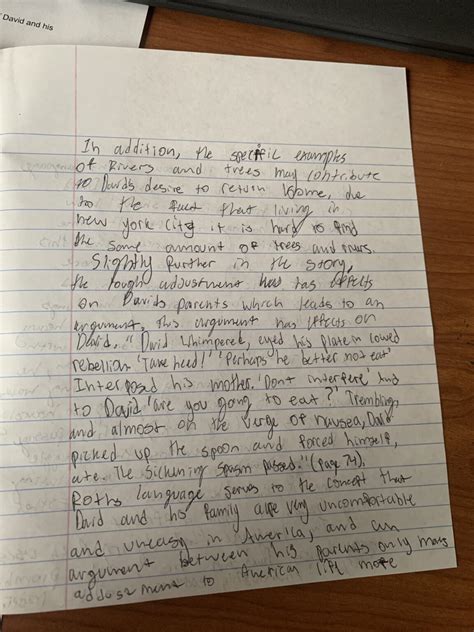 David and his
In addition, the specific examples
of Rivers and trees may contribute
to Davids desire to return home, due
to the fact that living in
new york city it is hard to find
the same amount of trees and rivers.
Slightly further in the story,
the tough adjustment has effects
on Davids parents which leads to an
argument, this argument has effects on
David, "David whimpered, eyed his plate in cowed
rebellion. 'Take heed!' 'Perhaps he better not eat'
Interposed his mother. 'Don't interfere' And
to David 'are you going to eat?' Trembling,
and almost on the verge of nausea, David
picked up the spoon and forced himself,
ate. The sickening spasm passed." (page 74).
Roths language serves to the concept that
David and his family are very uncomfortable
and uneasy in America, and an
argument between his parents only
to American life more